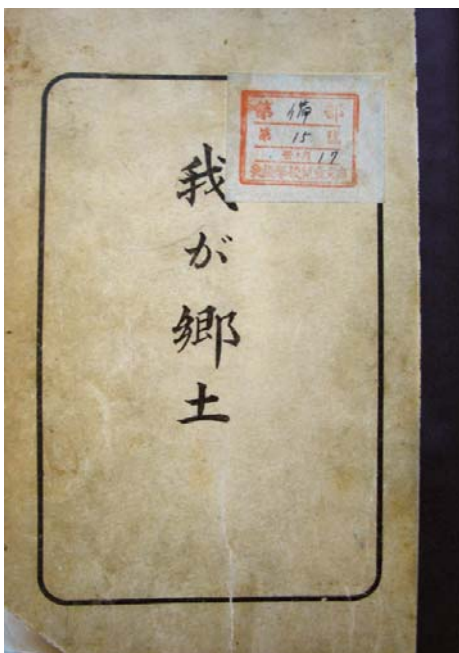 我が郷土
第 備 部
第 15 號
17